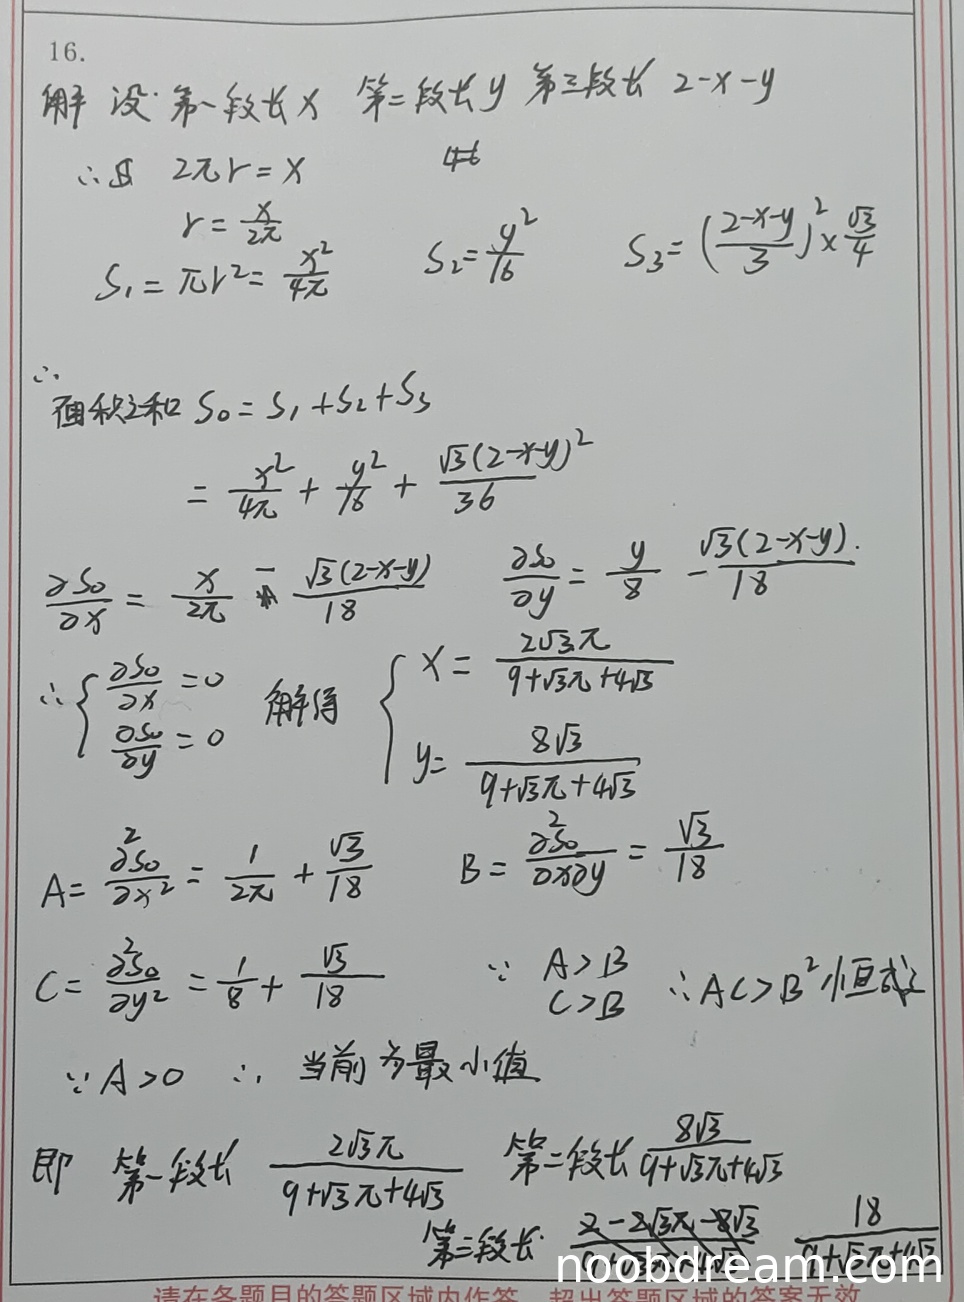 16.
解 设 第一段长 x 第二段长 y 第三段长 2-x-y
∴且 2πr = x
r = x/2π
S₁ = πr² = x²/4π S₂ = y²/16 S₃ = ((2-x-y)/3)² × √3/4
∴
面积之和 S₀ = S₁ + S₂ + S₃
= x²/4π + y²/16 + √3(2-x-y)²/36
∂S₀/∂x = x/2π - √3(2-x-y)/18 ∂S₀/∂y = y/8 - √3(2-x-y)/18
∴ { ∂S₀/∂x = 0 ∂S₀/∂y = 0 解得 { x = 2√3π/(9+√3π+4√3) y = 8√3/(9+√3π+4√3)
A = ∂²S₀/∂x² = 1/2π + √3/18 B = ∂²S₀/∂x∂y = √3/18
C = ∂²S₀/∂y² = 1/8 + √3/18 ∵ A>B C>B ∴ AC>B² 恒成立
∵ A>0 ∴ 当前为最小值
即 第一段长 2√3π/(9+√3π+4√3) 第二段长 8√3/(9+√3π+4√3)
第三段长 18/(9+√3π+4√3)
noobdream.com
请在各题目的答题区域内作答，超出答题区域的答案无效